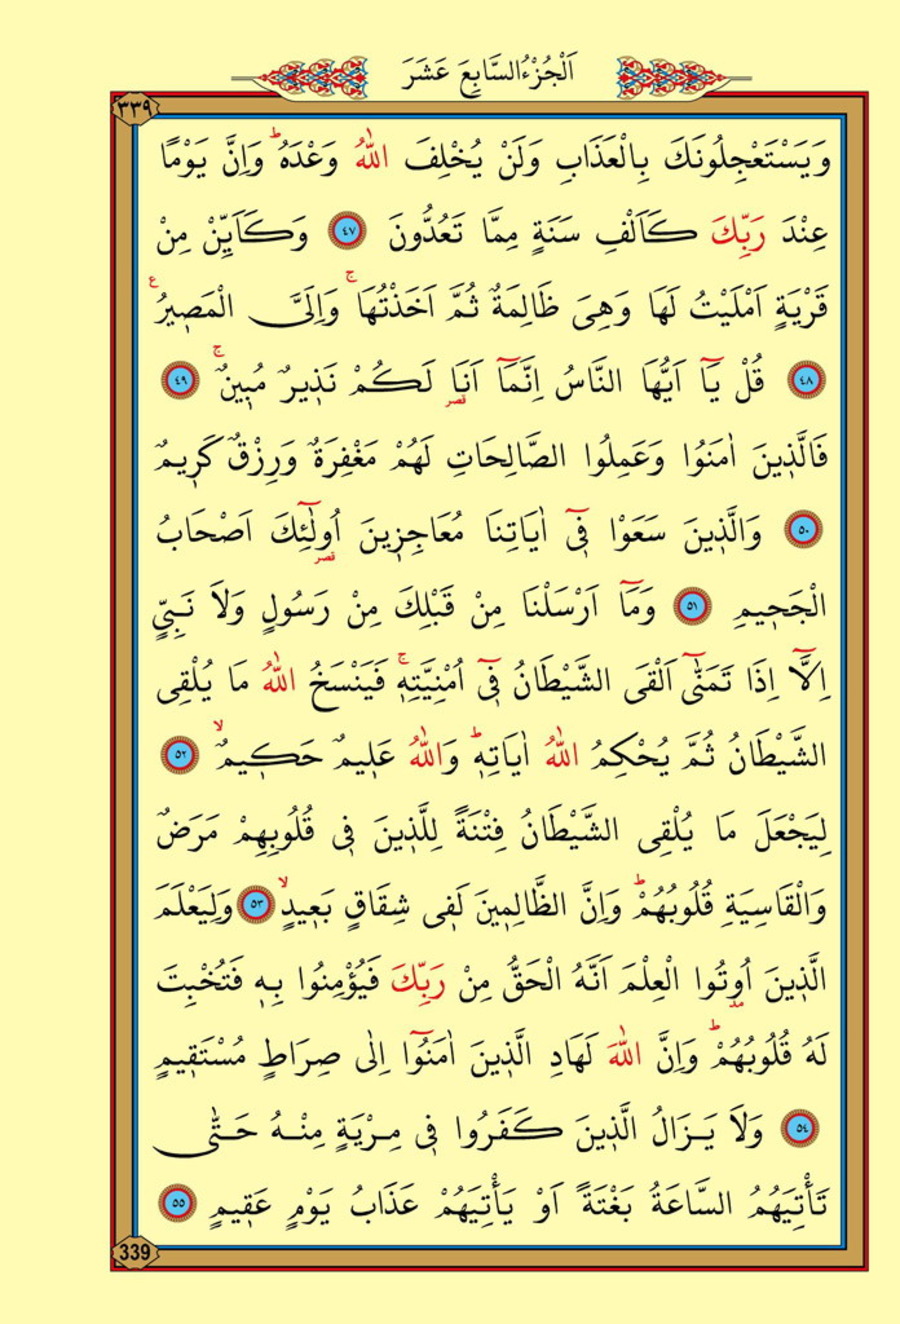 اَلْجُزْءُ السَّابِعَ عَشَرَ
٣٣٩
وَيَسْتَعْجِلُونَكَ بِالْعَذَابِ وَلَنْ يُخْلِفَ اللّٰهُ وَعْدَهُ ط وَاِنَّ يَوْمًا
عِنْدَ رَبِّكَ كَاَلْفِ سَنَةٍ مِمَّا تَعُدُّونَ ٤٧ وَكَاَيِّنْ مِنْ
قَرْيَةٍ اَمْلَيْتُ لَهَا وَهِىَ ظَالِمَةٌ ثُمَّ اَخَذْتُهَا ج وَاِلَىَّ الْمَصٖيرُ ع
٤٨ قُلْ يَٓا اَيُّهَا النَّاسُ اِنَّمَٓا اَنَا قصر لَكُمْ نَذٖيرٌ مُبٖينٌ ج ٤٩
فَالَّذٖينَ اٰمَنُوا وَعَمِلُوا الصَّالِحَاتِ لَهُمْ مَغْفِرَةٌ وَرِزْقٌ كَرٖيمٌ
٥٠ وَالَّذٖينَ سَعَوْا فٖٓى اٰيَاتِنَا مُعَاجِزٖينَ اُولٰٓئِكَ قصر اَصْحَابُ
الْجَحٖيمِ ٥١ وَمَٓا اَرْسَلْنَا مِنْ قَبْلِكَ مِنْ رَسُولٍ وَلَا نَبِىٍّ
اِلَّٓا اِذَا تَمَنّٰٓى اَلْقَى الشَّيْطَانُ فٖٓى اُمْنِيَّتِهٖ ج فَيَنْسَخُ اللّٰهُ مَا يُلْقِى
الشَّيْطَانُ ثُمَّ يُحْكِمُ اللّٰهُ اٰيَاتِهٖ ط وَاللّٰهُ عَلٖيمٌ حَكٖيمٌ لا ٥٢
لِيَجْعَلَ مَا يُلْقِى الشَّيْطَانُ فِتْنَةً لِلَّذٖينَ فٖى قُلُوبِهِمْ مَرَضٌ
وَالْقَاسِيَةِ قُلُوبُهُمْ ط وَاِنَّ الظَّالِمٖينَ لَفٖى شِقَاقٍ بَعٖيدٍ لا ٥٣ وَلِيَعْلَمَ
الَّذٖينَ اُوتُوا مد الْعِلْمَ اَنَّهُ الْحَقُّ مِنْ رَبِّكَ فَيُؤْمِنُوا بِهٖ فَتُخْبِتَ
لَهُ قُلُوبُهُمْ ط وَاِنَّ اللّٰهَ لَهَادِ الَّذٖينَ اٰمَنُٓوا اِلٰى صِرَاطٍ مُسْتَقٖيمٍ
٥٤ وَلَا يَزَالُ الَّذٖينَ كَفَرُوا فٖى مِرْيَةٍ مِنْهُ حَتّٰى
تَأْتِيَهُمُ السَّاعَةُ بَغْتَةً اَوْ يَأْتِيَهُمْ عَذَابُ يَوْمٍ عَقٖيمٍ ٥٥
339